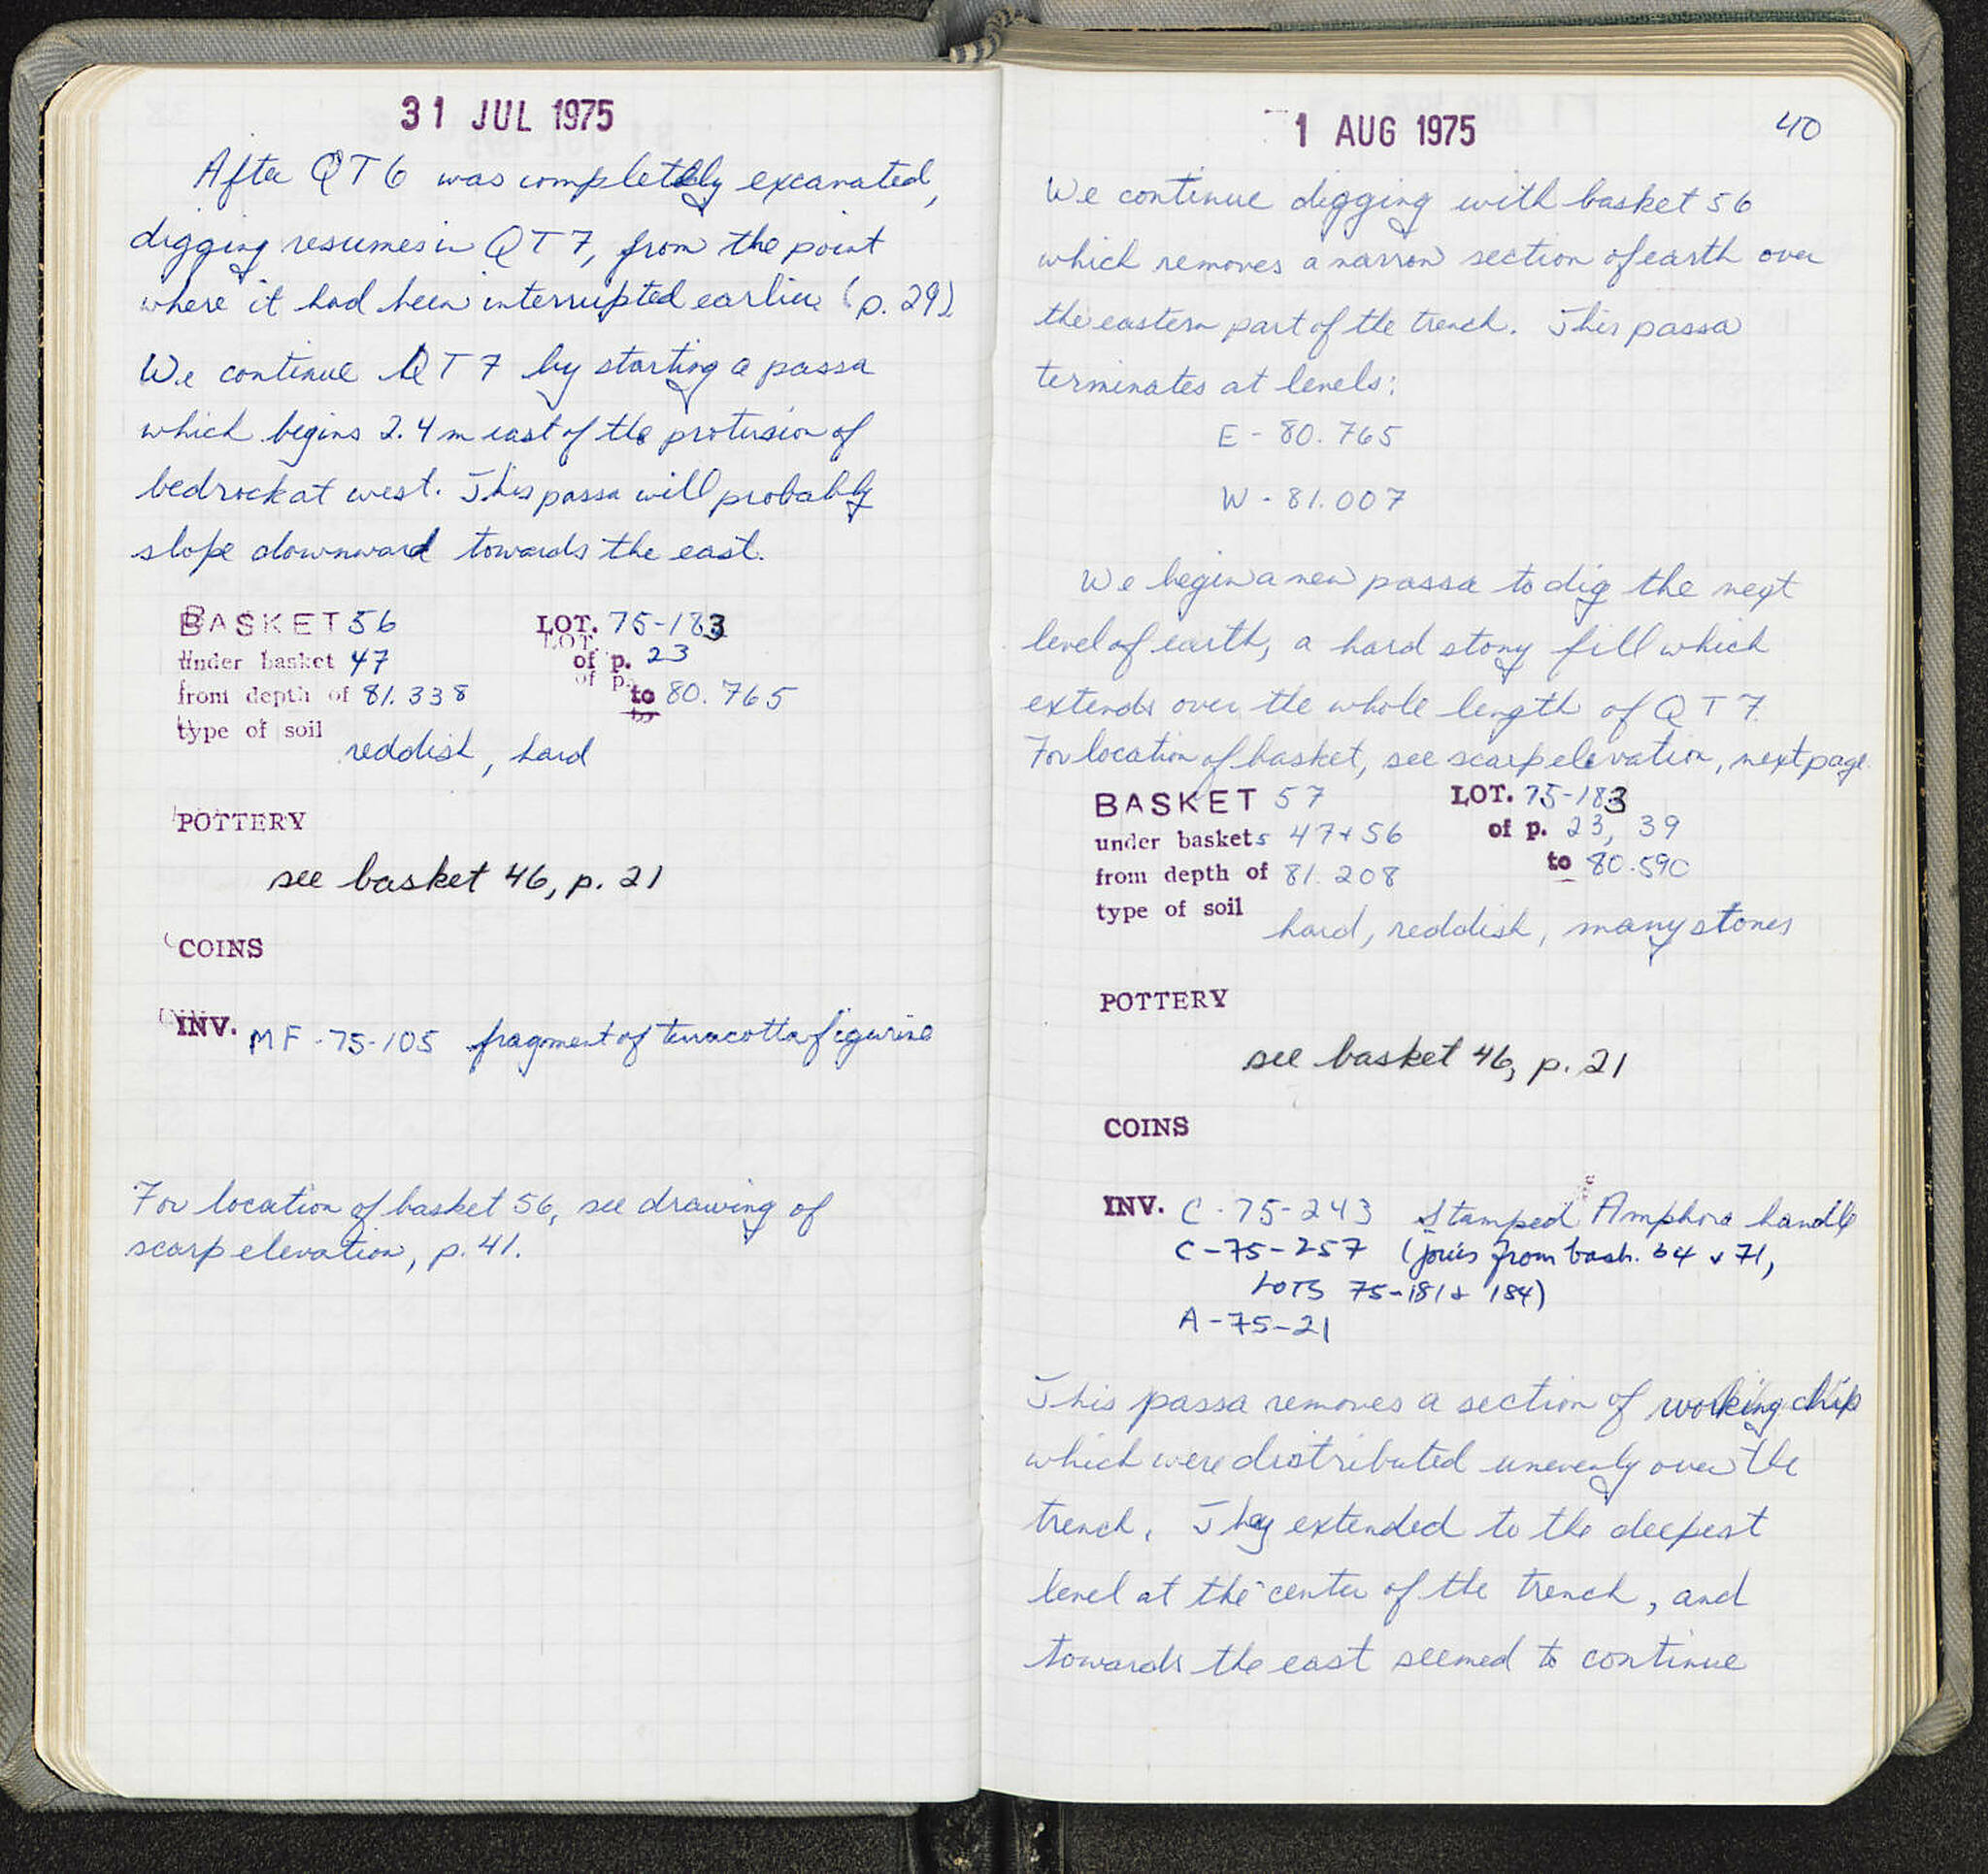 31 JUL 1975
After QT6 was completely excavated,
digging resumes in QT7, from the point
where it had been interrupted earlier (p. 29)
We continue QT7 by starting a passa
which begins 2.4 m east of the protusion of
bedrock at west. This passa will probably
slope downward towards the east.
BASKET 56 LOT. 75-183
under basket 47 of p. 23
from depth of 81.338 to 80.765
type of soil
reddish, hard
POTTERY
see basket 46, p. 21
COINS
INV. MF-75-105 fragment of terracotta figurine
For location of basket 56, see drawing of
scarp elevation, p. 41.
1 AUG 1975 40
We continue digging with basket 56
which removes a narrow section of earth over
the eastern part of the trench. This passa
terminates at levels:
E - 80.765
W - 81.007
We begin a new passa to dig the next
level of earth, a hard stony fill which
extends over the whole length of QT7.
For location of basket, see scarp elevation, next page.
BASKET 57 LOT. 75-183
under baskets 47+56 of p. 23, 39
from depth of 81.208 to 80.590
type of soil
hard, reddish, many stones
POTTERY
see basket 46, p. 21
COINS
INV. C-75-243 Stamped Amphora handle
C-75-257 (joins from bask. 64 & 71,
LOTS 75-181 & 184)
A-75-21
This passa removes a section of working chip
which were distributed unevenly over the
trench. They extended to the deepest
level at the center of the trench, and
towards the east seemed to continue